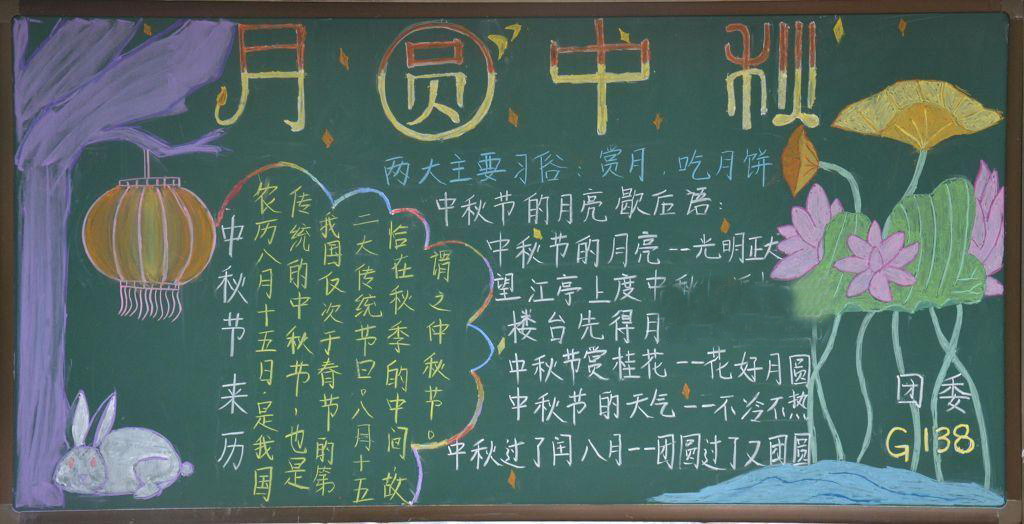 月圆中秋
两大主要习俗：赏月、吃月饼
中秋节来历
农历八月十五日，是我国
传统的中秋节，也是
我国仅次于春节的第
二大传统节日。八月十五
恰在秋季的中间故
谓之仲秋节。
中秋节的月亮歇后语：
中秋节的月亮--光明正大
望江亭上度中秋
楼台先得月
中秋节赏桂花--花好月圆
中秋节的天气--不冷不热
中秋过了闰八月--团圆过了又团圆
团委
G138